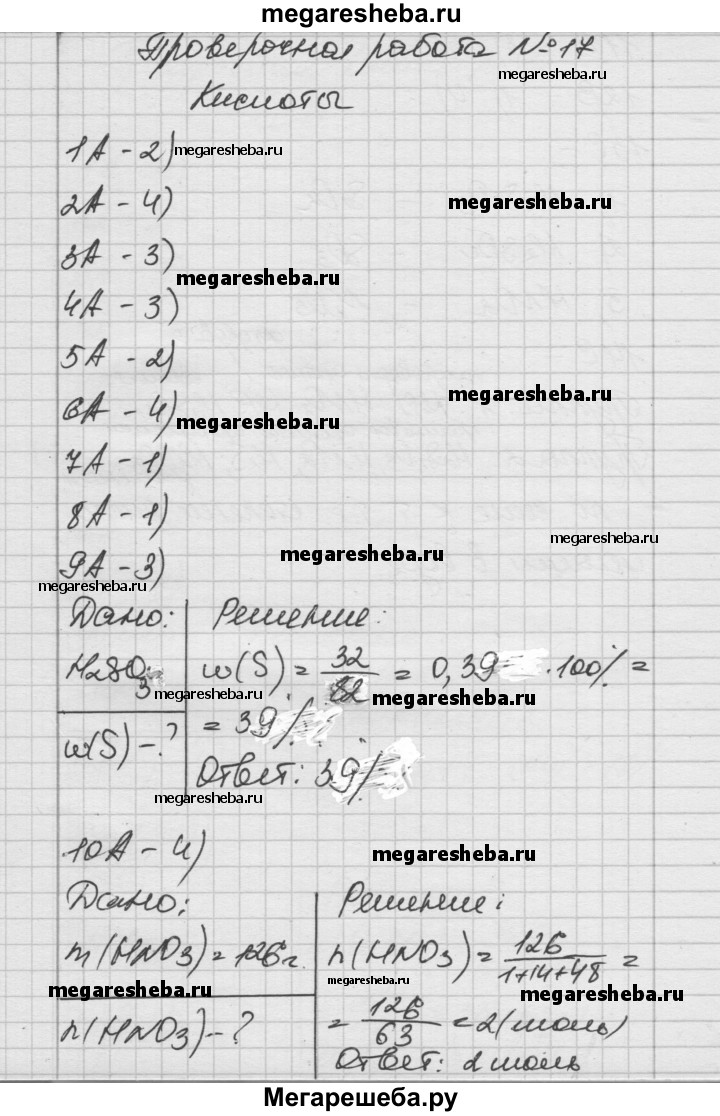 megaresheba.ru
Проверочная работа №17
megaresheba.ru
Кислоты
1А - 2) megaresheba.ru
2А - 4) megaresheba.ru
3А - 3) megaresheba.ru
4А - 3)
5А - 2)
megaresheba.ru
6А - 4) megaresheba.ru
7А - 1)
8А - 1) megaresheba.ru
megaresheba.ru
9А - 3)
megaresheba.ru
Дано: Решение:
H2SO3 w(S) = 32/82 = 0,39 · 100% =
megaresheba.ru megaresheba.ru
w(S) - ? = 39%
Ответ: 39%
megaresheba.ru
10А - 4) megaresheba.ru
Дано: Решение:
m(HNO3) = 126г. n(HNO3) = 126/1+14+48 =
megaresheba.ru megaresheba.ru megaresheba.ru
n(HNO3) - ? = 126/63 = 2(моль)
Ответ: 2 моль
Мегарешеба.ру